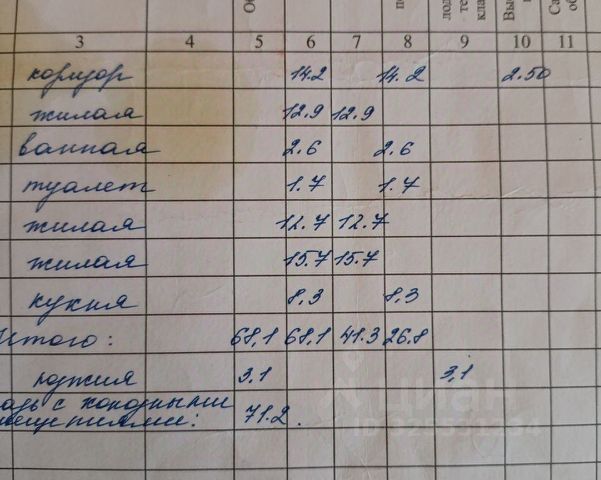 Об
по
лод
те
кла
Вы
Са
об
3 4 5 6 7 8 9 10 11
коридор 14.2 14.2 2.50
жилая 12.9 12.9
ванная 2.6 2.6
туалет 1.7 1.7
жилая 12.7 12.7
жилая 15.7 15.7
кухня 8,3 8,3
Итого: 68,1 68,1 41.3 26.8
лоджия 3,1 3,1
адь с холодными
мещениями: 71.2.
циан